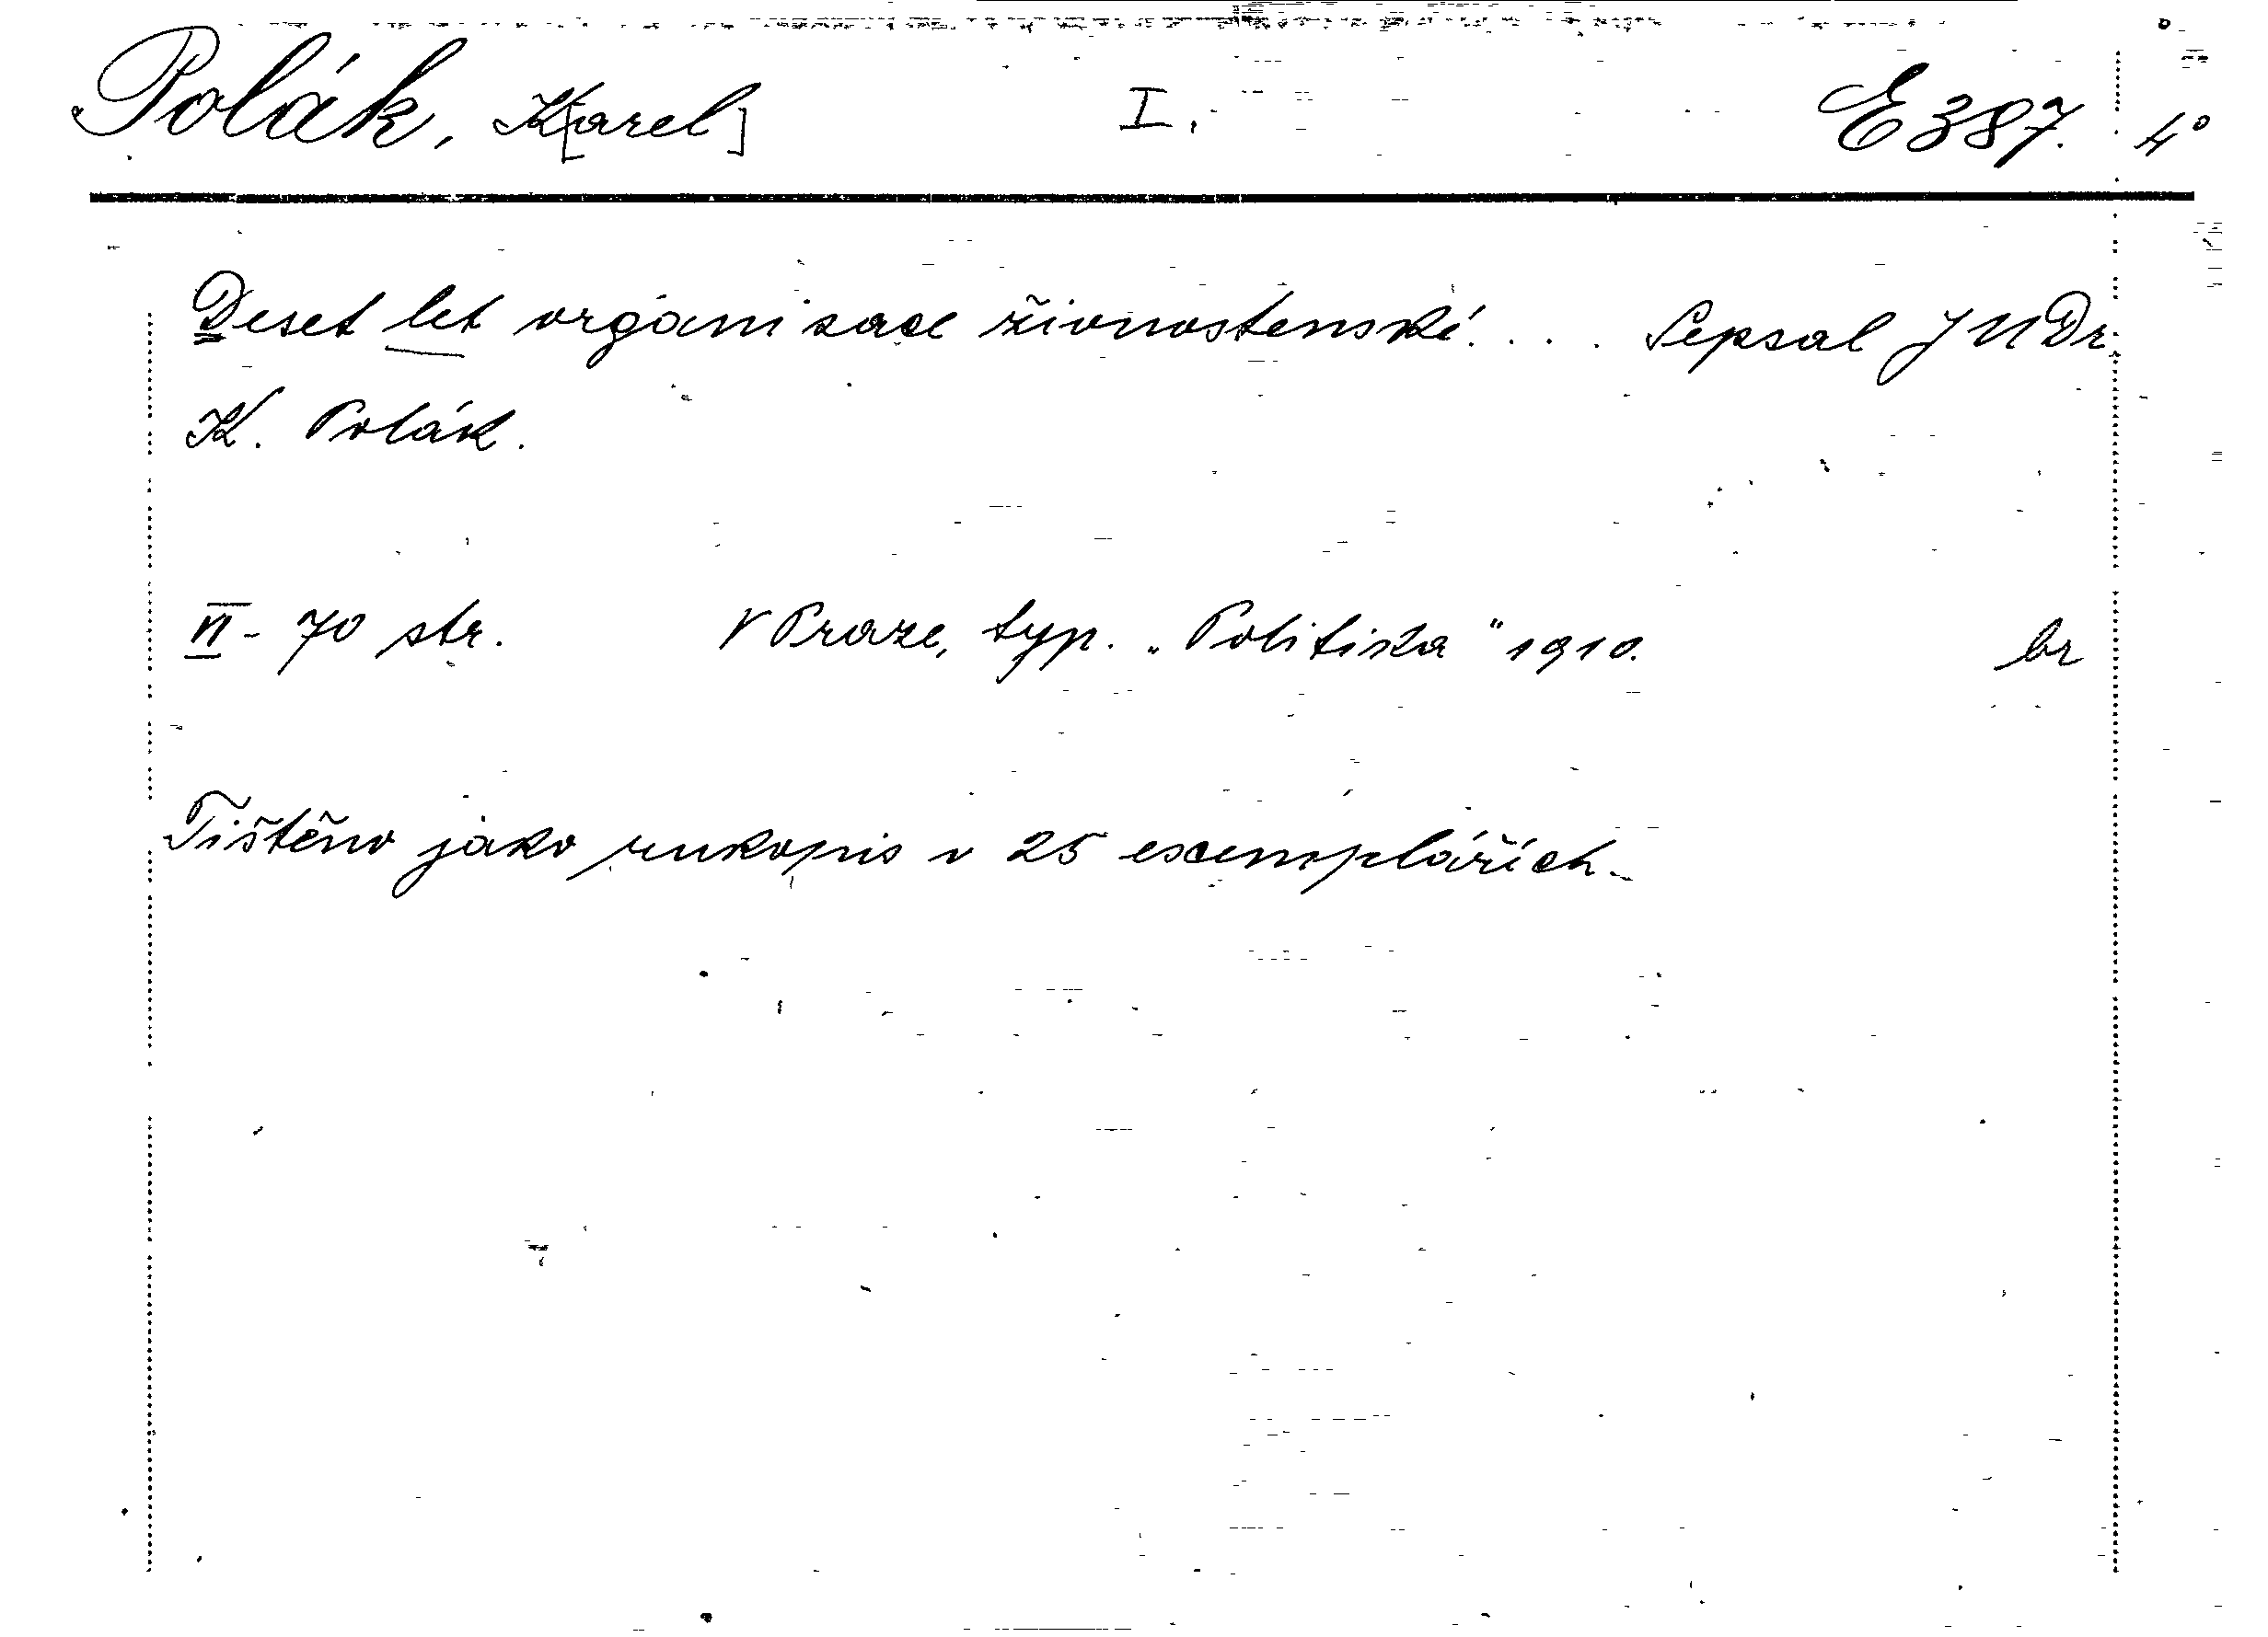 Polák, K[arel] I. E 387. 4°
Deset let organisace živnostenské.... Sepsal JUDr.
K. Polák.
VI - 70 str. V Praze, typ. „Politika" 1910. br
Tištěno jako rukopis v 25 exemplářích.